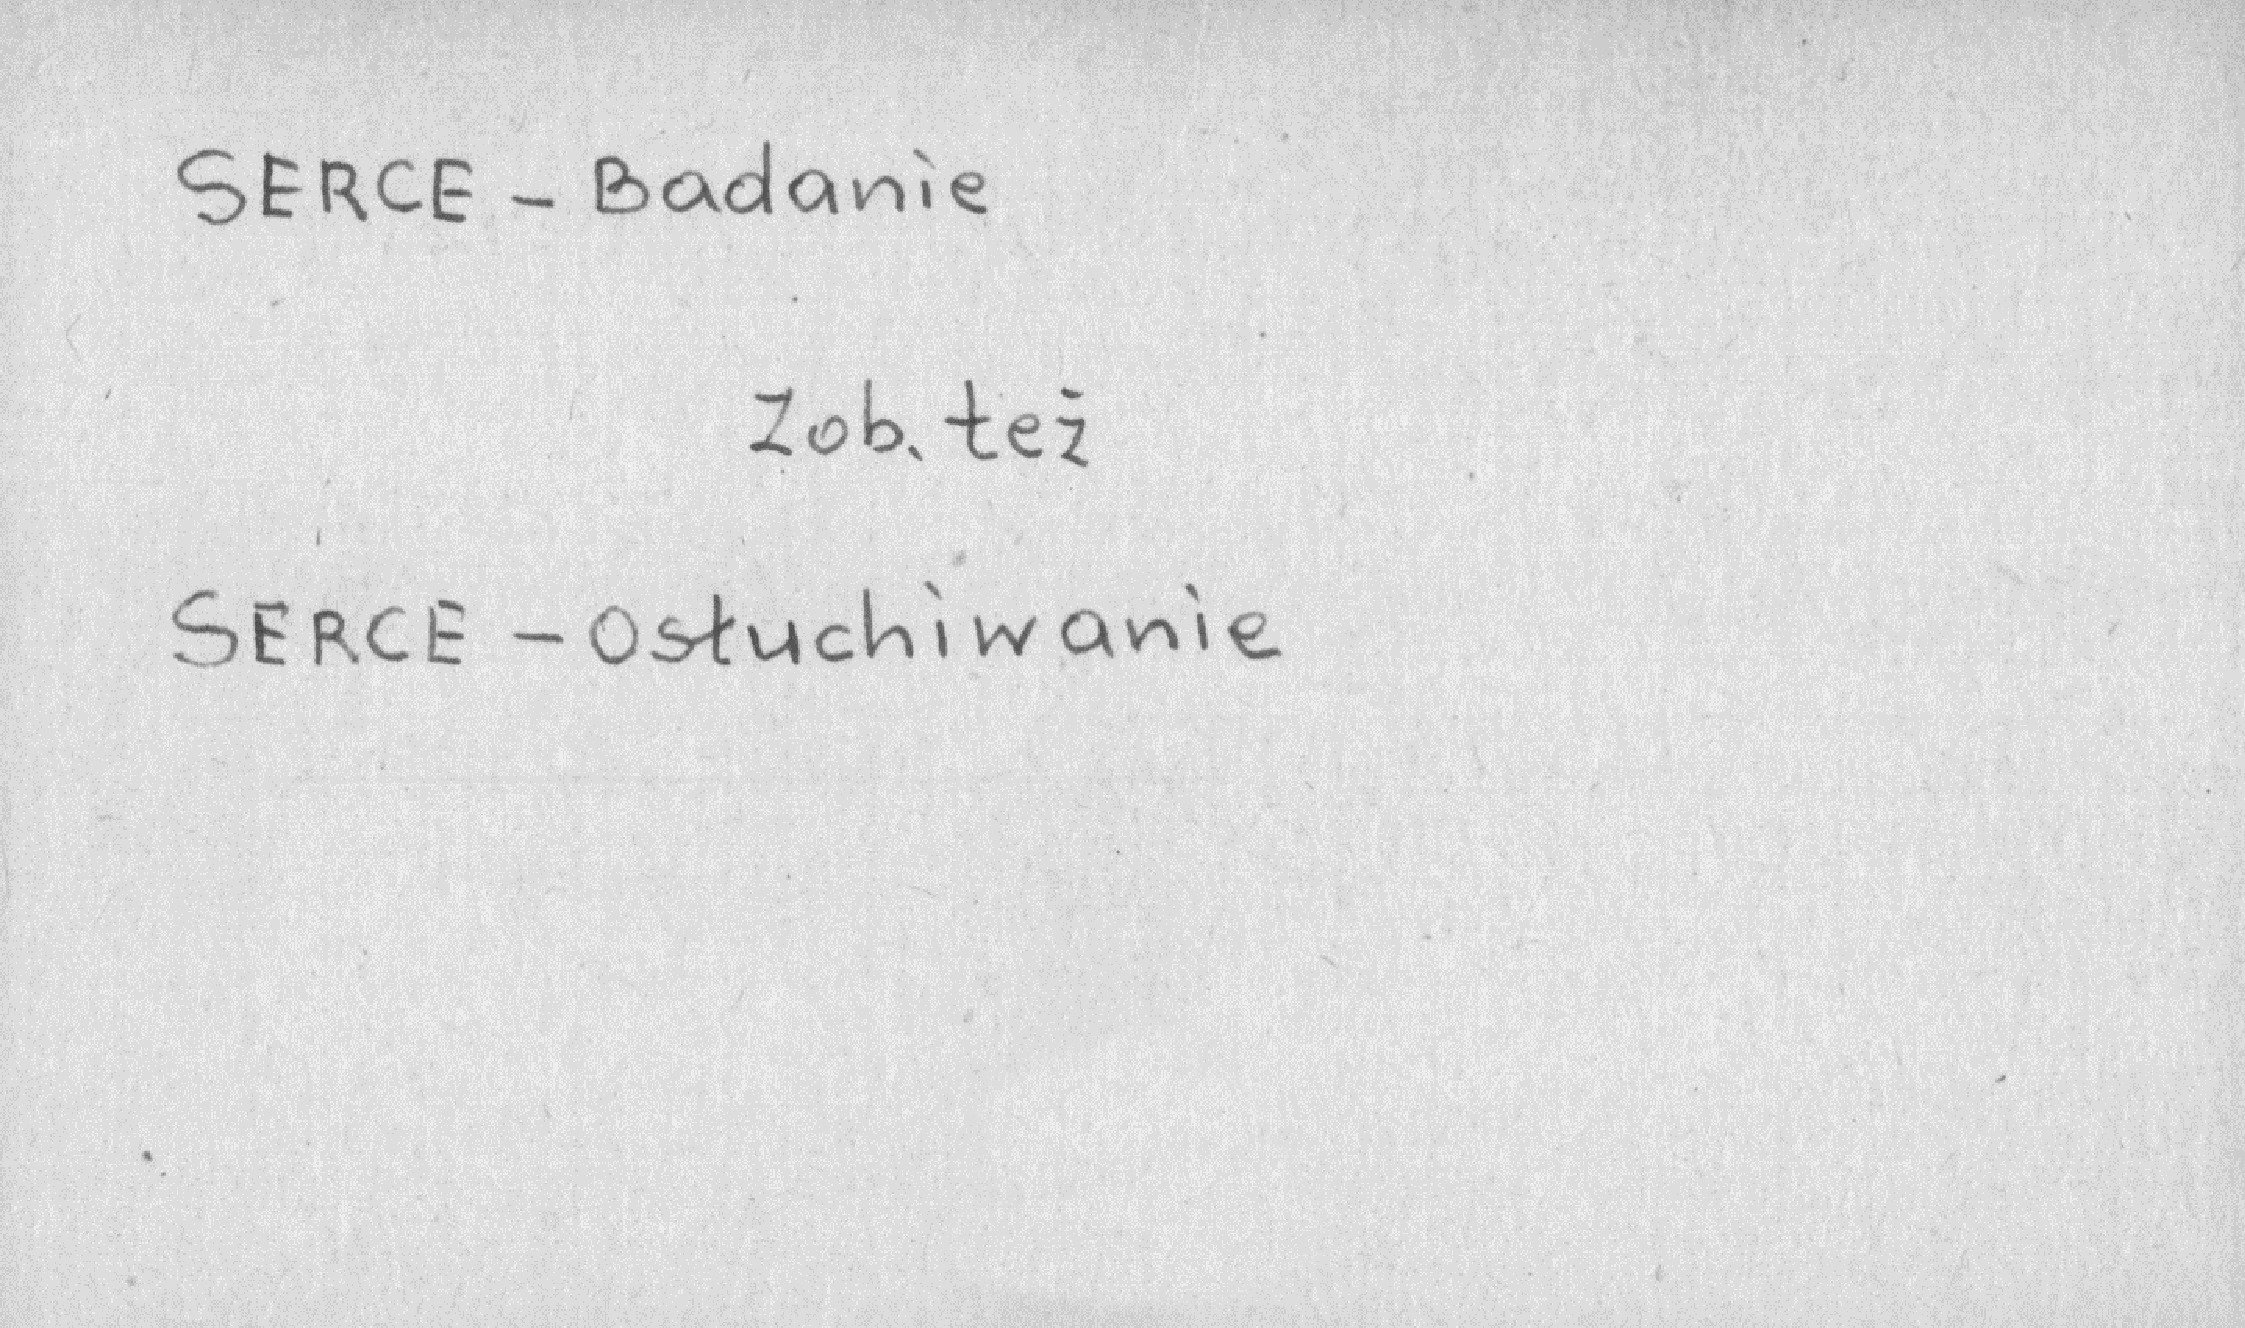 SERCE - Badanie
Zob. też
SERCE - Osłuchiwanie